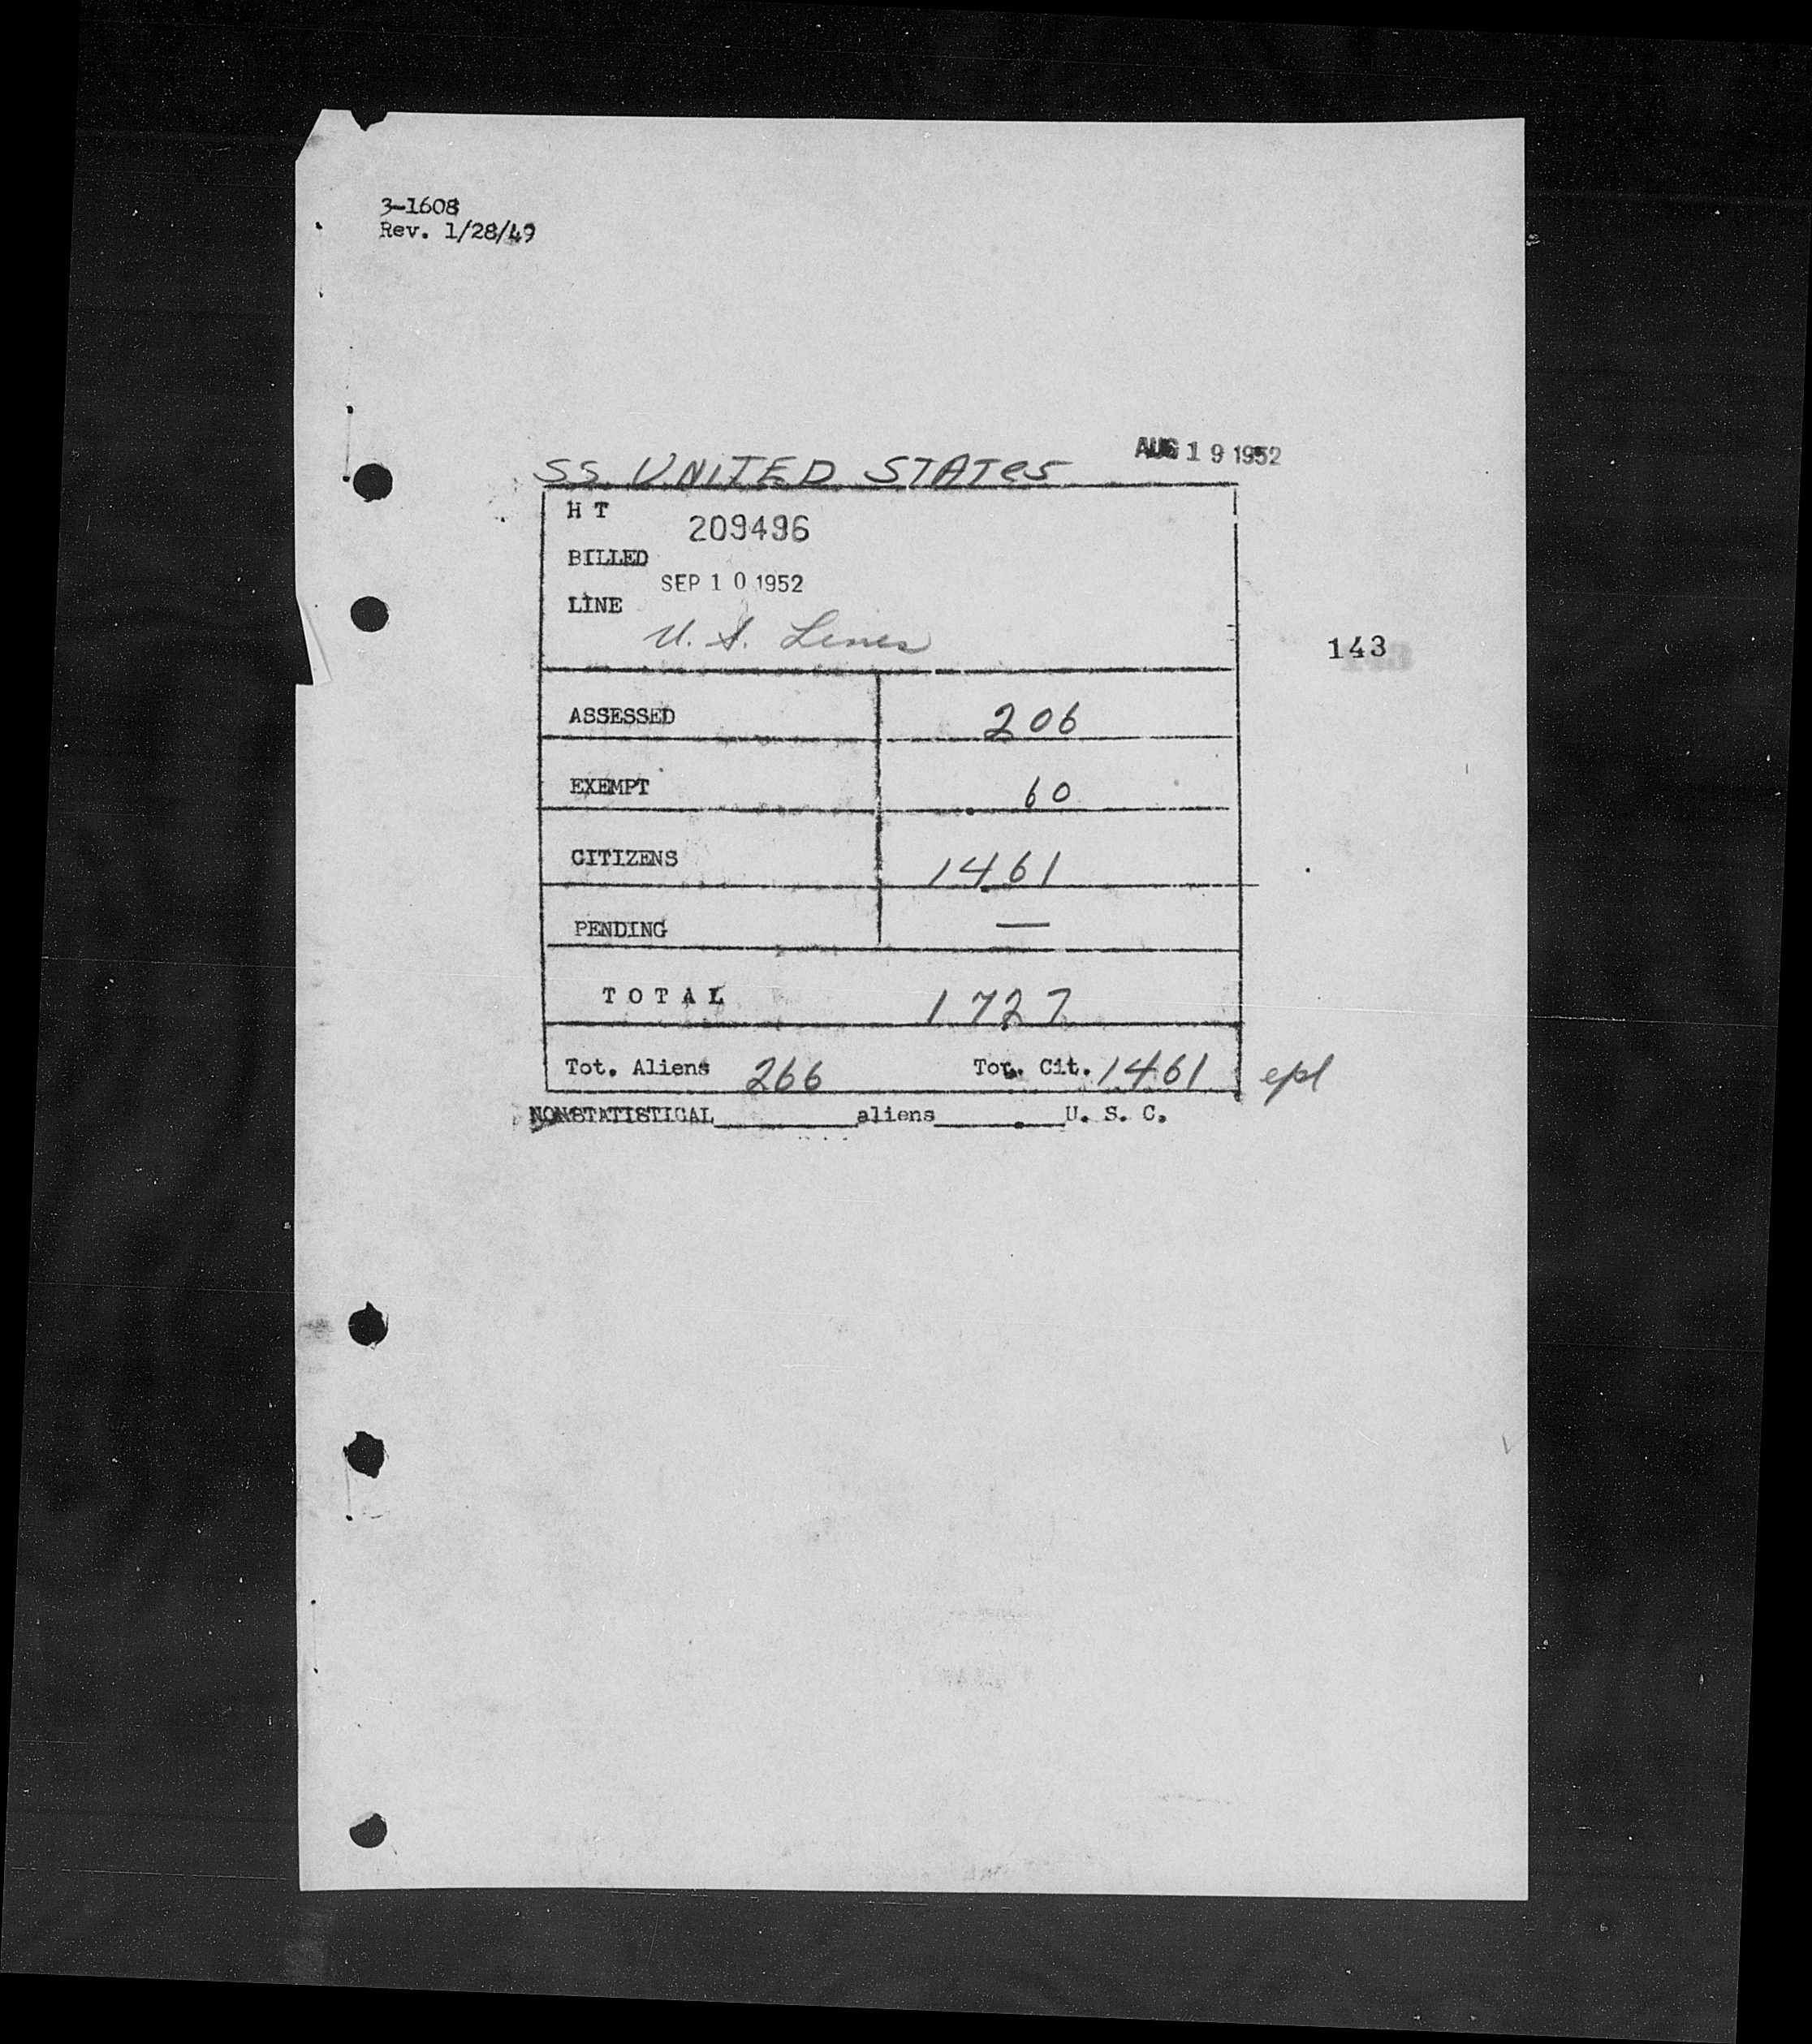 3-1608
Rev. 1/28/49
AUG 19 1952
SS. UNITED STATES
H T
209496
BILLED
SEP 10 1952
LINE
U. S. Lines
143
ASSESSED 206
EXEMPT 60
CITIZENS 1461
PENDING —
TOTAL 1727
Tot. Aliens 266 Tot. Cit. 1461 epl
NONSTATISTICAL________aliens________U. S. C.